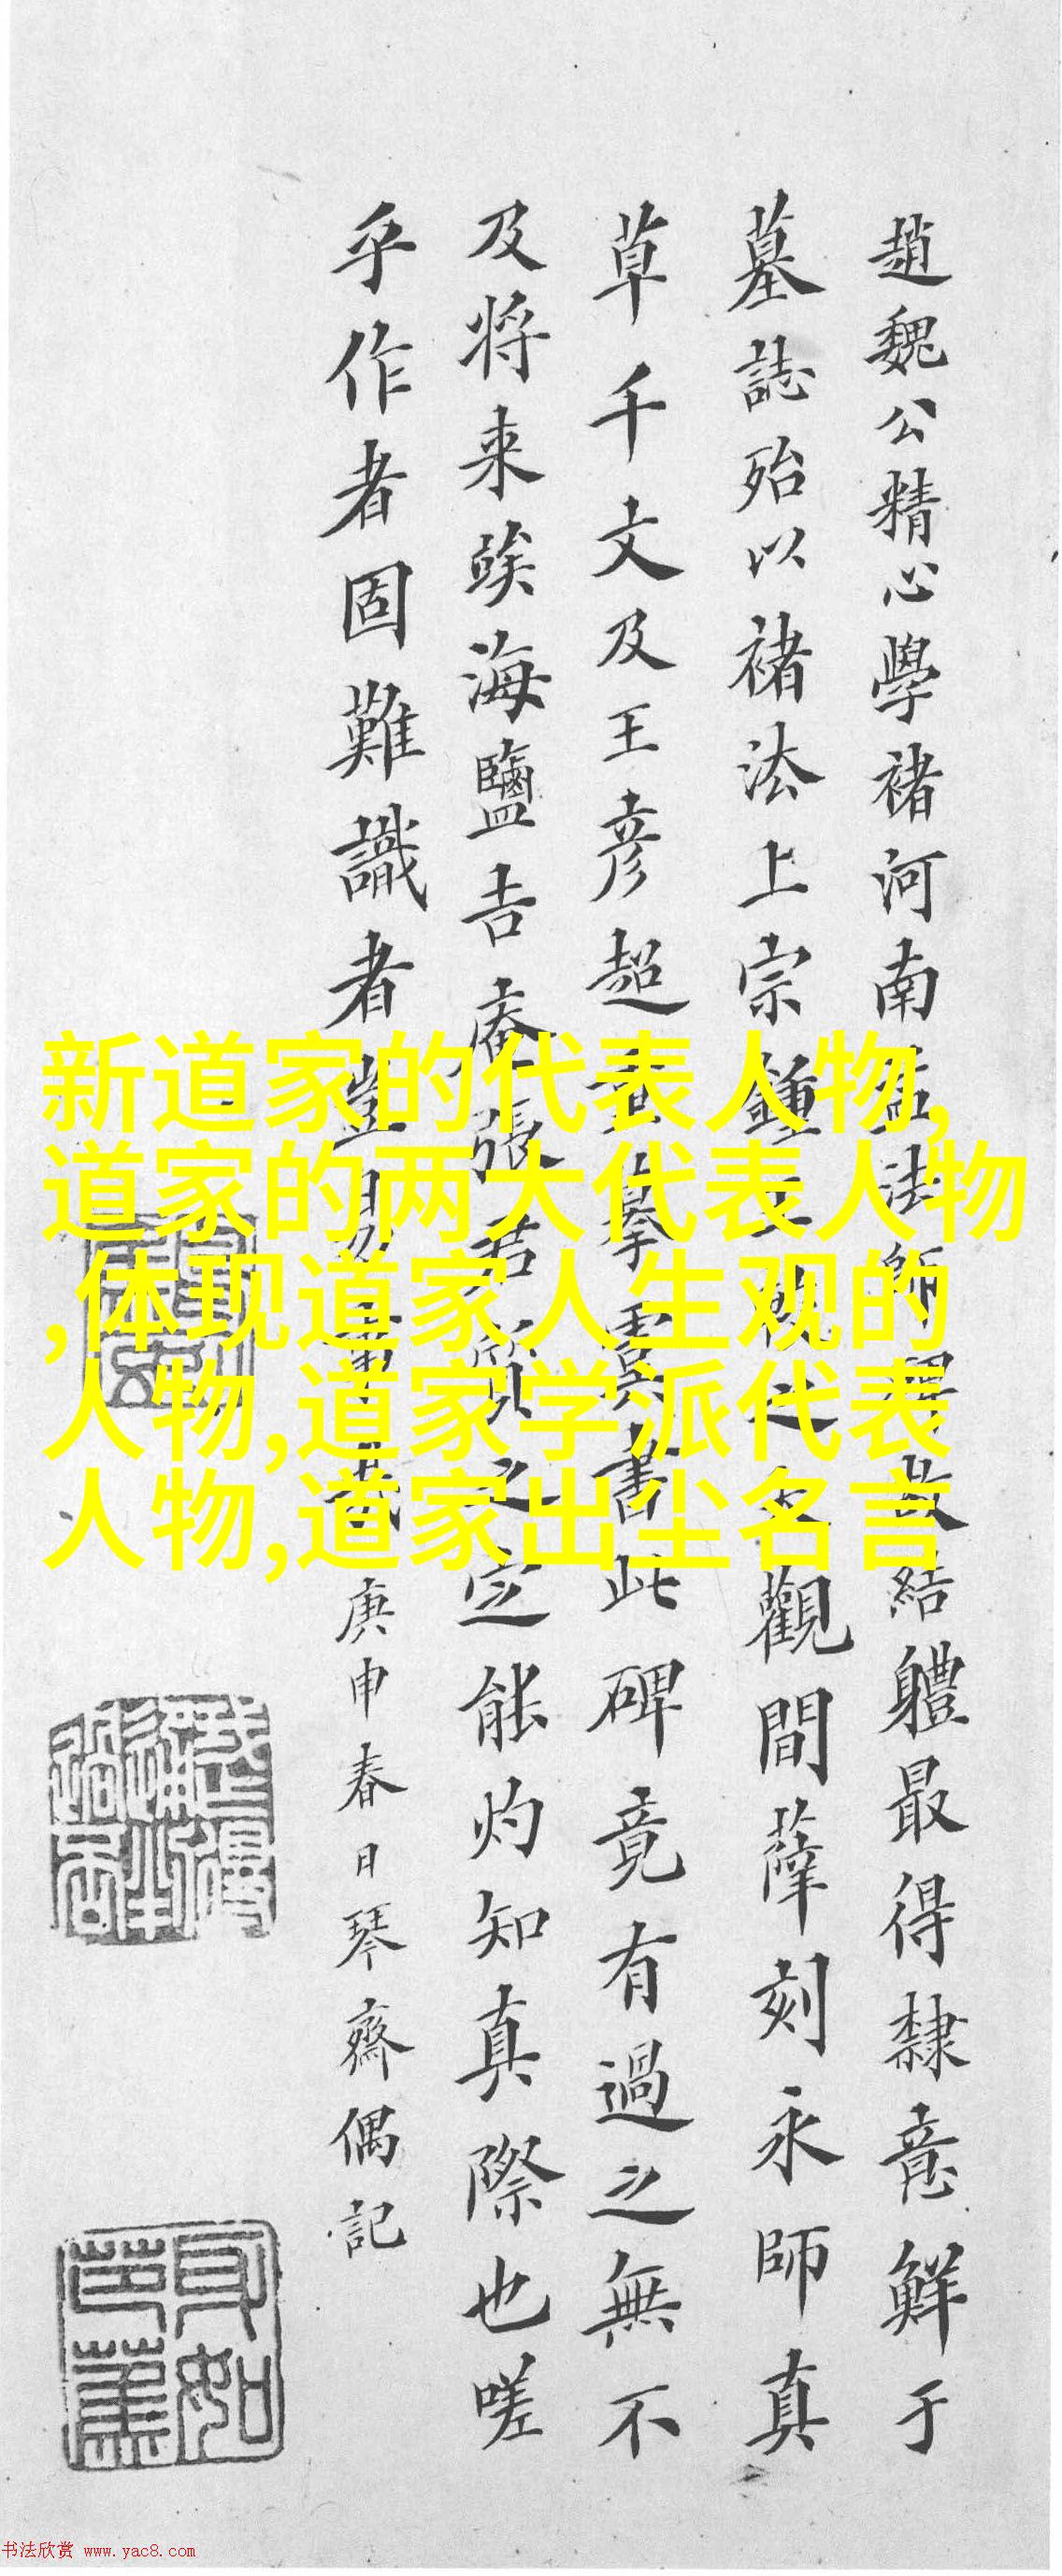 趙魏公精心學褚河南孟法師碑故結軆最得隸意鮮于
墓誌殆以褚法上宗鍾觀間薛刻永師真
草千文及王彦超重摹虞書此碑竟有過之無不
及将来竢海鹽吉庵張君質之定能灼知真際也嗟
乎作者固難識者豈易言哉庚申春日琴齋偶記
新道家的代表人物,
道家的两大代表人物
,体现道家人生观的
人物,道家学派代表
人物,道家出尘名言
书法欣赏 www.yac8.com